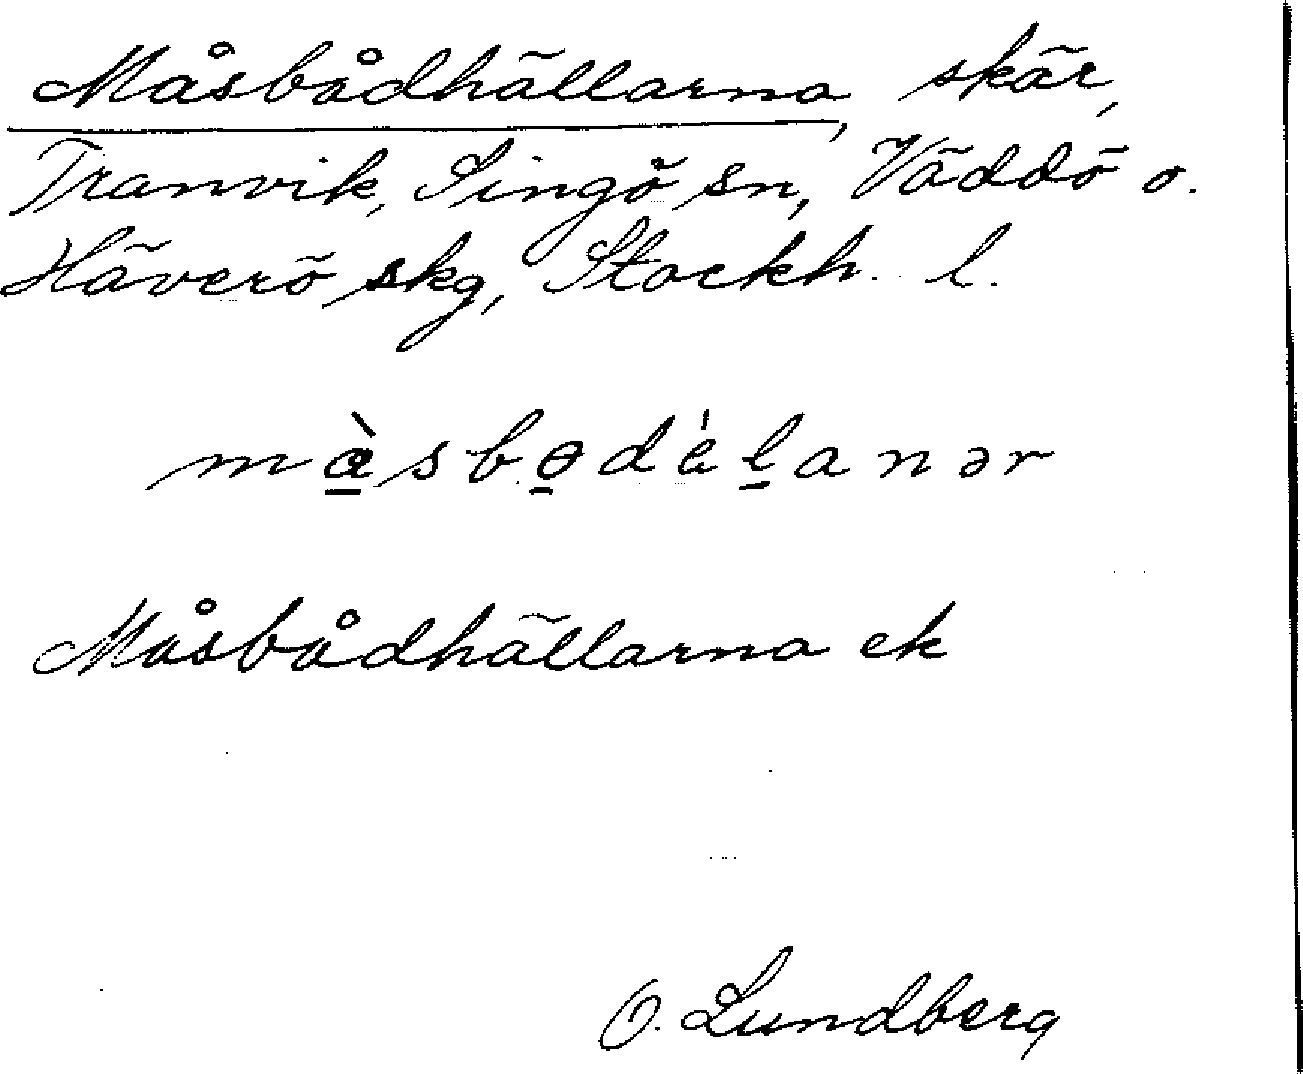 Måsbådhällarna, skär,
Tranvik, Singö sn, Väddö o.
Häverö skg, Stockh. l.
Måsbådhällarna ek
O. Lundberg